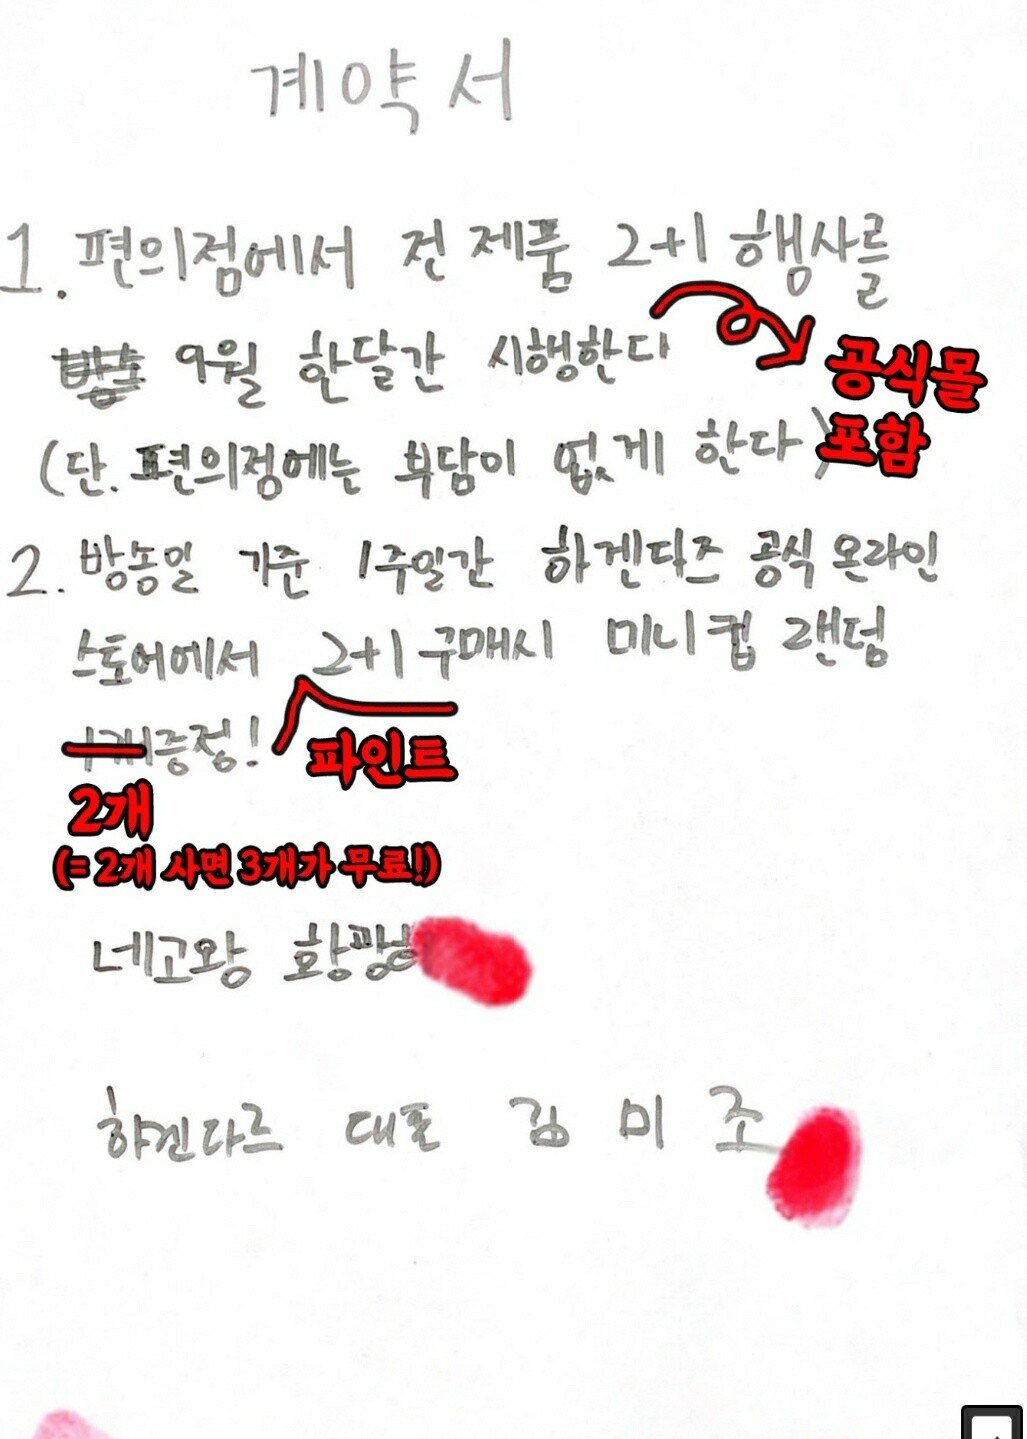 계약서
1. 편의점에서 전 제품 2+1 행사를
9월 한달간 시행한다
공식몰
포함
(단. 편의점에는 부담이 없게 한다)
2. 방송일 기준 1주일간 하겐다즈 공식 온라인
스토어에서 2+1 구매시 미니컵 랜덤
1개증정!
파인트
2개
(= 2개 사면 3개가 무료!)
네고왕 황광희
하겐다즈 대표 김 미 조